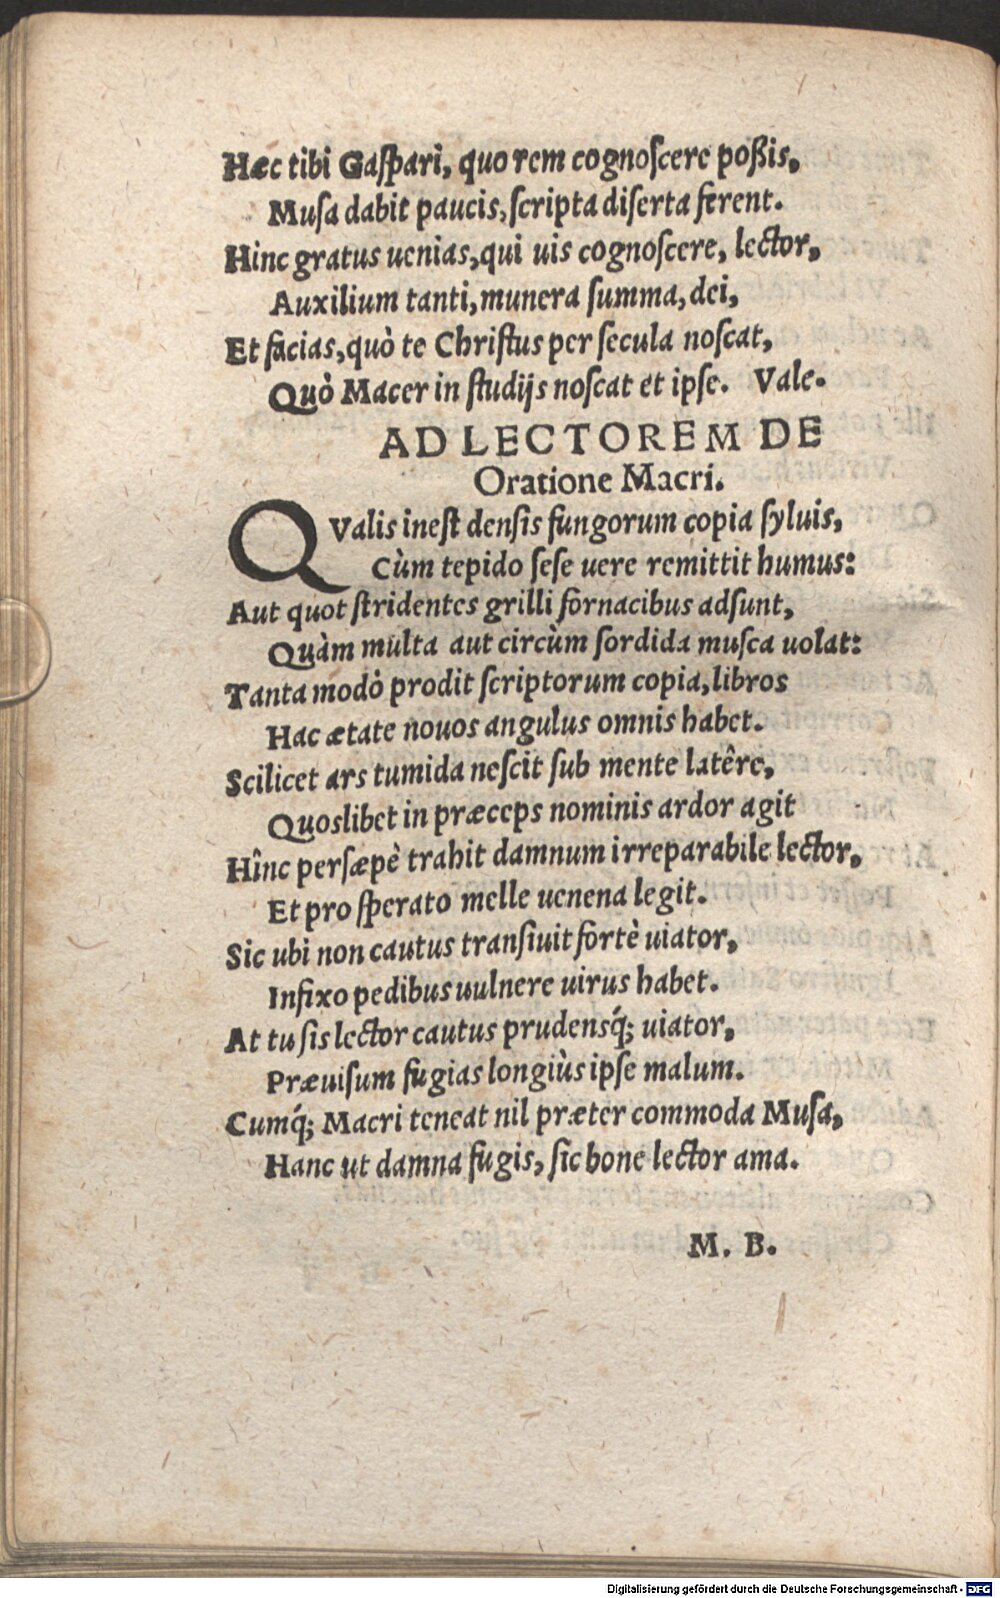 Hæc tibi Gaſpari, quo rem cognoſcere poßis,
Muſa dabit paucis, ſcripta diſerta ferent.
Hinc gratus uenias, qui uis cognoſcere, lector,
Auxilium tanti, munera ſumma, dei,
Et facias, quò te Chriſtus per ſecula noſcat,
Quò Macer in ſtudijs noſcat et ipſe. Vale.
AD LECTOREM DE
Oratione Macri.
QValis ineſt denſis fungorum copia ſyluis,
Cùm tepido ſeſe uere remittit humus:
Aut quot ſtridentes grilli fornacibus adſunt,
Quàm multa aut circùm ſordida muſca uolat:
Tanta modò prodit ſcriptorum copia, libros
Hac ætate nouos angulus omnis habet.
Scilicet ars tumida neſcit ſub mente latêre,
Quoslibet in præceps nominis ardor agit
Hînc perſæpè trahit damnum irreparabile lector,
Et pro ſperato melle uenena legit.
Sic ubi non cautus tranſiuit fortè uiator,
Infixo pedibus uulnere uirus habet.
At tu ſis lector cautus prudensq́; uiator,
Præuiſum fugias longiùs ipſe malum.
Cumq́; Macri teneat nil præter commoda Muſa,
Hanc ut damna fugis, ſic bone lector ama.
M. B.
Digitalisierung gefördert durch die Deutsche Forschungsgemeinschaft - DFG